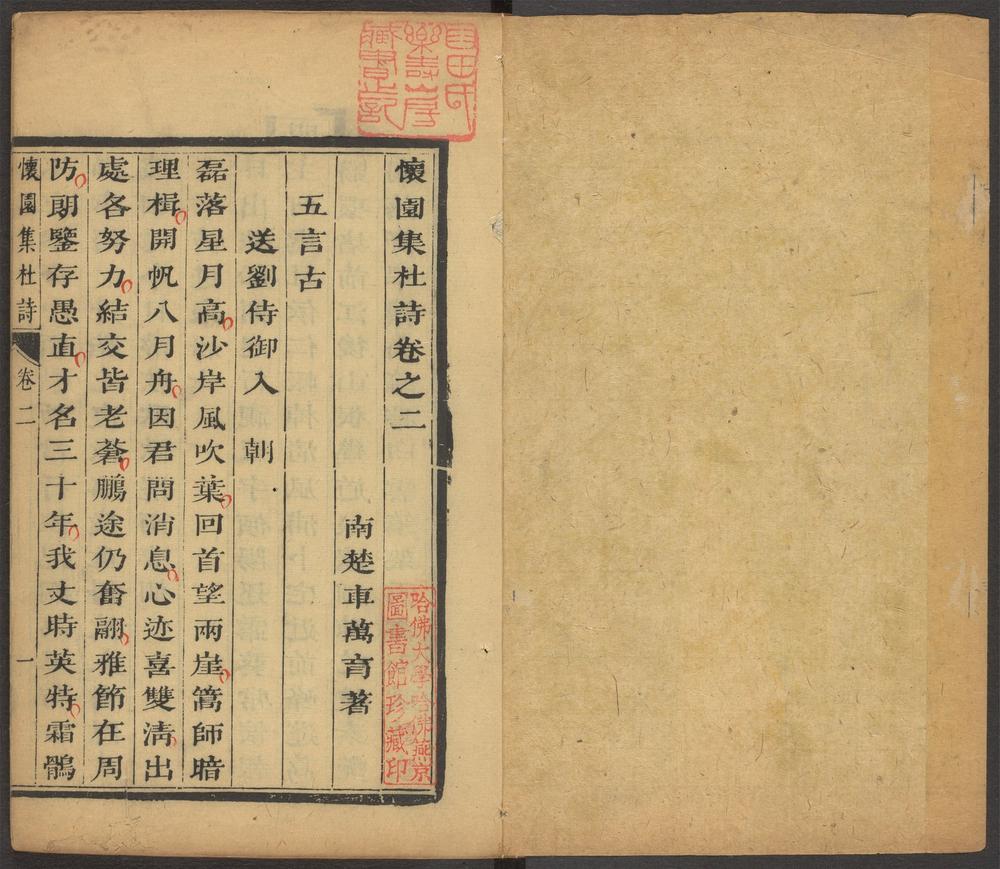 懷園集杜詩卷之二
南楚車萬育著
五言古
送劉侍御入 朝
磊落星月高沙岸風吹葉回首望兩崖篙師暗
理楫開帆八月舟因君問消息心迹喜雙淸出
處各努力結交皆老蒼鵬途仍奮翮雅節在周
防朗鑒存愚直才名三十年我丈時英特霜鶻
懷園集杜詩
卷二
一
樂壽山房
藏書之記
哈佛大學哈佛燕京
圖書館珍藏印